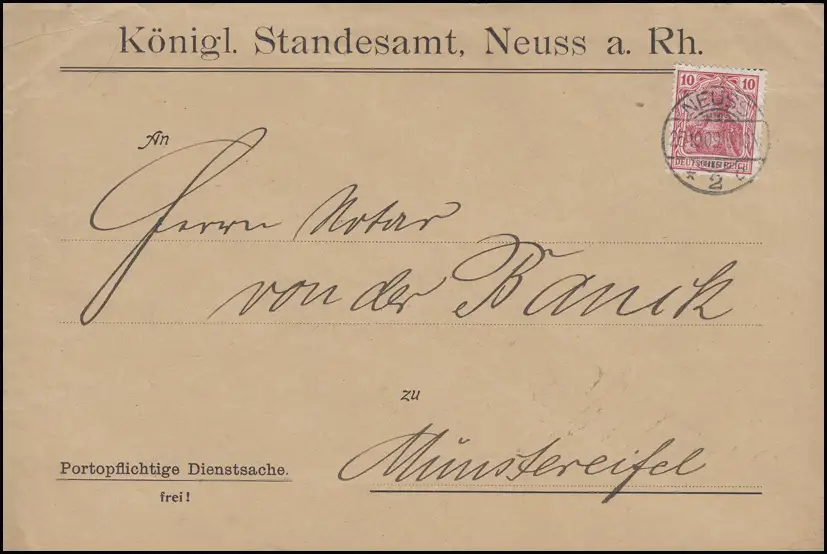 Königl. Standesamt, Neuss a. Rh.
10 10
NEUSS
DEUTSCHES REICH
* 2 c
An
Herrn Notar
von der Banck
zu
Münstereifel
Portopflichtige Dienstsache.
frei!